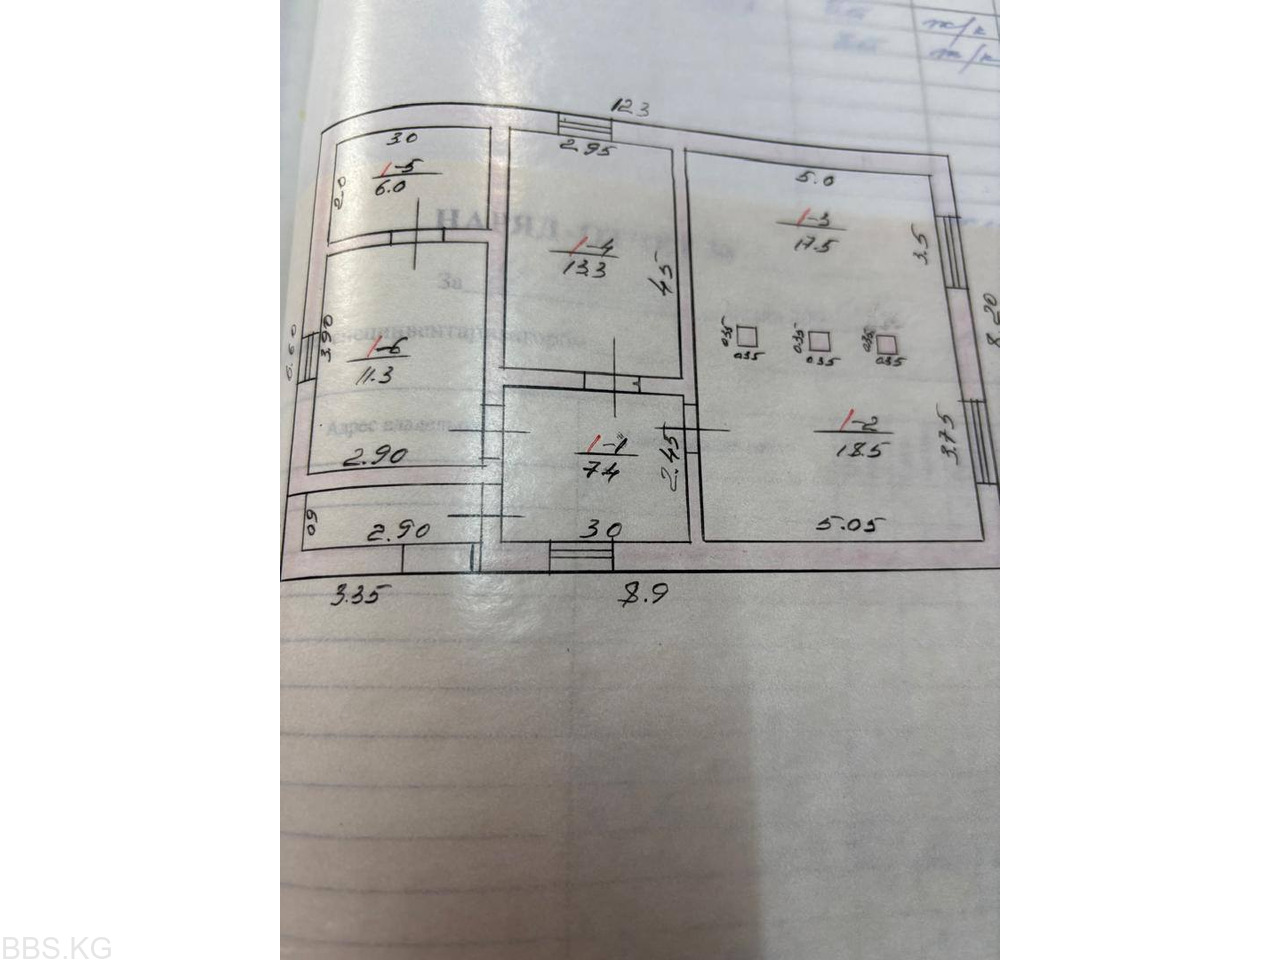 ж/к
ж/к
12.3
3.0
2.95
5.0
1-5
6.0
2.0
1-3
17.5
3.5
НАРЯД-
1-4
13.3
4.5
За
8.20
3.90
6.60
0.35
0.35
0.35
0.35
0.35
0.35
1-6
11.3
Адрес владельца
1-1
7.4
2.45
1-2
18.5
3.75
2.90
60
2.90
3.0
5.05
3.35
8.9
BBS.KG